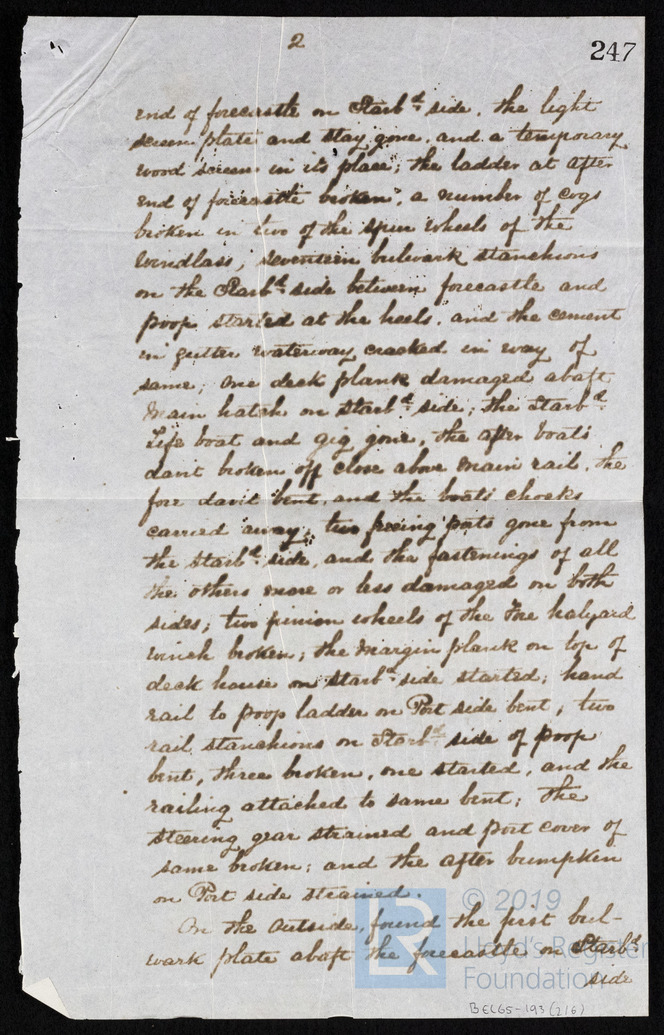 2
247
end of forecastle on Starb.d side, the light
screen plate and stay gone, and a temporary
wood screen in its place; the ladder at after
end of forecastle broken, a number of cogs
broken in two of the spur wheels of the
Windlass, seventeen bulwark stanchions
on the Starb.d side between forecastle and
poop started at the heels, and the cement
in gutter waterway cracked in way of
same; one deck plank damaged abaft
Main hatch on Starb.d side; the Starb.d
Life boat and gig gone, the after boats
davit broken off close above main rail, the
fore davit bent, and the boats' chocks
carried away; two freeing ports gone from
the Starb.d side, and the fastenings of all
the others more or less damaged on both
sides; two pinion wheels of the Fore halyard
winch broken; the margin plank on top of
deck house on Starb.d side started; hand
rail to poop ladder on Port side bent; two
rail stanchions on Starb.d side of poop
bent, three broken, one started, and the
railing attached to same bent; the
steering gear strained and port cover of
same broken; and the after bumpken
on Port side strained.
On the outside, found the first bul-
wark plate abaft the forecastle on Starb.d
side
© 2019
LR
Lloyd's Register
Foundation
BEC65-193(2/6)